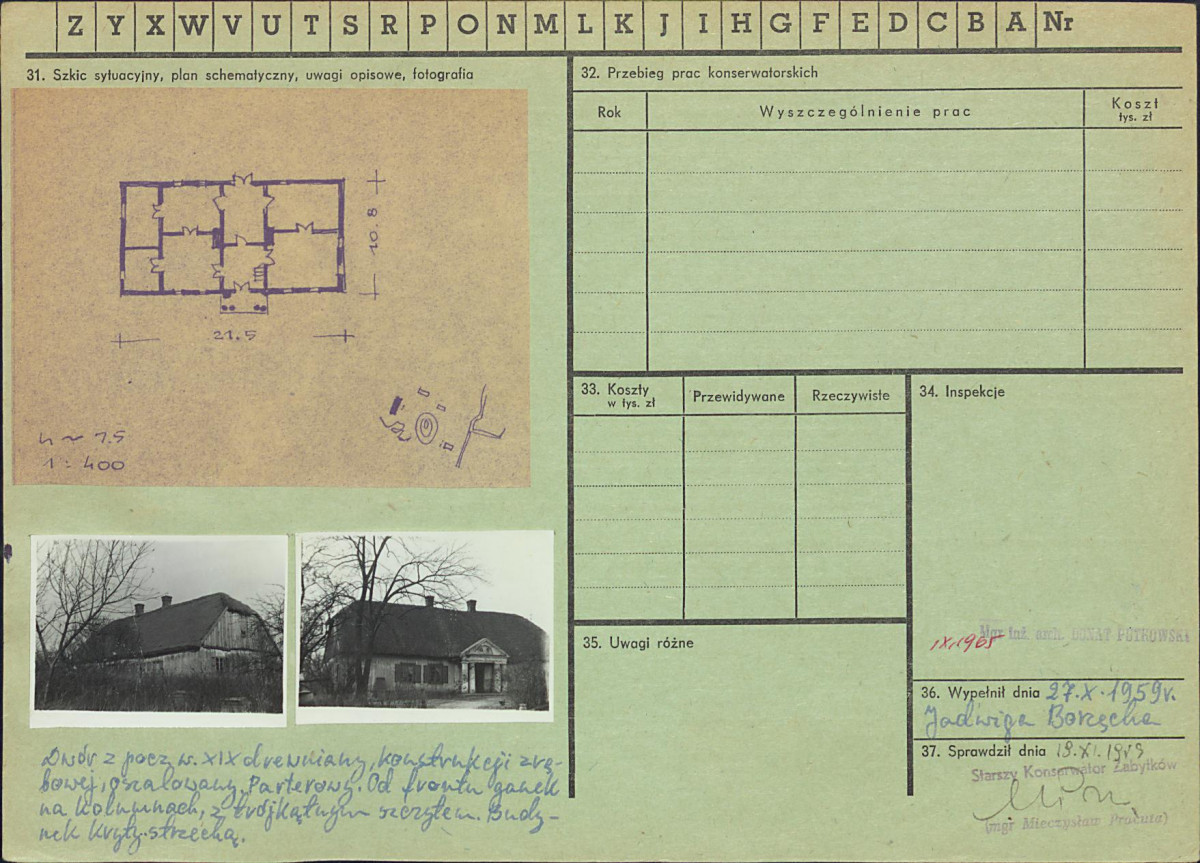 Z Y X W V U T S R P O N M L K J I H G F E D C B A Nr
31. Szkic sytuacyjny, plan schematyczny, uwagi opisowe, fotografia
10.8
21.5
h ~ 7.5
1:400
Dwór z pocz. w. XIX drewniany, konstrukcji zrę-
bowej, oszalowany. Parterowy. Od frontu ganek
na kolumnach, z trójkątnym szczytem. Budy-
nek kryty strzechą.
32. Przebieg prac konserwatorskich
Rok Wyszczególnienie prac Koszt
tys. zł
33. Koszty
w tys. zł
Przewidywane Rzeczywiste
34. Inspekcje
Mgr inż. arch.
IX.1965
35. Uwagi różne
36. Wypełnił dnia 27.X.1959r.
Jadwiga Borzęcha
37. Sprawdził dnia 18.XI.1959
Starszy Konserwator Zabytków
(mgr Mieczysław